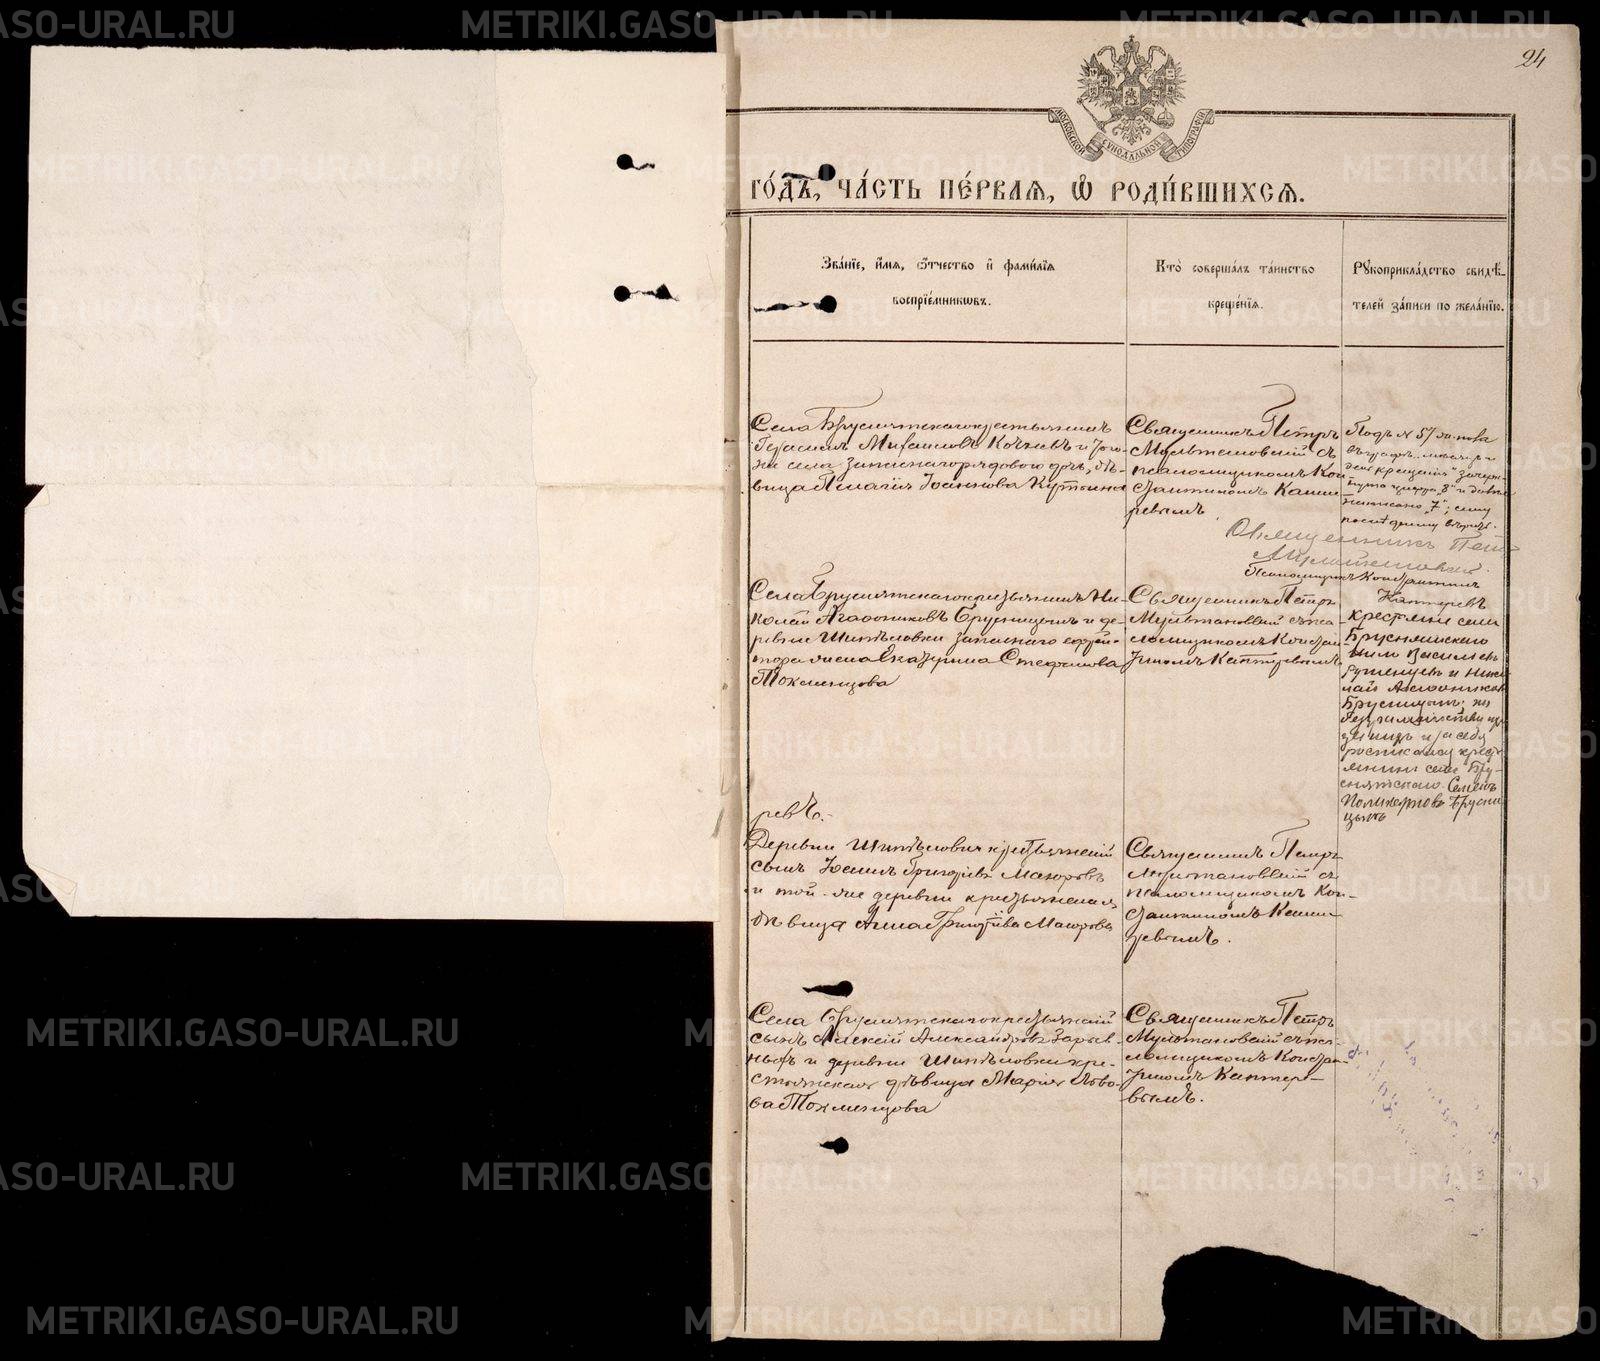 24
МОСКОВСКОЙ СѴНОДАЛЬНОЙ ТИПОГРАФІИ
го́дъ, ча́сть пе́рвая, ѡ҆ роди́вшихсѧ.
Зва́нїе, и҆́мѧ, ѻ҆́тчество и҆ фами́лїѧ
воспрїе́мникѡвъ.
Кто̀ соверша́лъ та́инство
креще́нїѧ.
Рꙋкоприкла́дство свидѣ́-
телей за́писи по жела́нїю.
Села Бруснятскаго крестьянинъ
Герасимъ Михаиловъ и того
же села запаснаго рядового дочь, дѣ-
вица Пелагія Іоаннова
Священникъ Петръ
Мултановскій съ
псаломщикомъ Кон
стантиномъ Капте
ревымъ.
Подъ № 57
крещенія" зачерк-
нута цифра "8" и
написано "7"; сему
Священникъ Петръ
Мултановскій.
Псаломщикъ Константинъ
Каптеревъ
Села Бруснятскаго крестьянинъ Ни-
колай Агафониковъ Брусницынъ и де-
ревни Шипѣловки запаснаго ефрей-
тора жена Екатерина Стефанова
Токменцова
Священникъ Петръ
Мултановскій съ пса
ломщикомъ Констан-
тиномъ Каптеревымъ
крестьяне села
Бруснятскаго
Васильевъ
и Нико-
лай Агафониковъ
Брусницынъ, по
и за себя
росписался кресть
янинъ села Бру-
снятскаго Семенъ
Поликарповъ Брусни
цынъ
ревъ.-
Деревни Шипѣловки крестьянскій
сынъ Іоаннъ Григорьевъ Мазоровъ
и той-же деревни крестьянская
дѣвица Анна Григорьева Мазорова
Священникъ Петръ
Мултановскій съ
псаломщикомъ Кон-
стантиномъ Капте
ревымъ.
Села Бруснятскаго крестьянскій
сынъ Алексѣй Александровъ
и деревни Шипѣловки кре-
стьянская дѣвица Марія Льво-
ва Токменцова
Священникъ Петръ
Мултановскій съ пса-
ломщикомъ Констан-
тиномъ Каптере-
вымъ.
METRIKI.GASO-URAL.RU